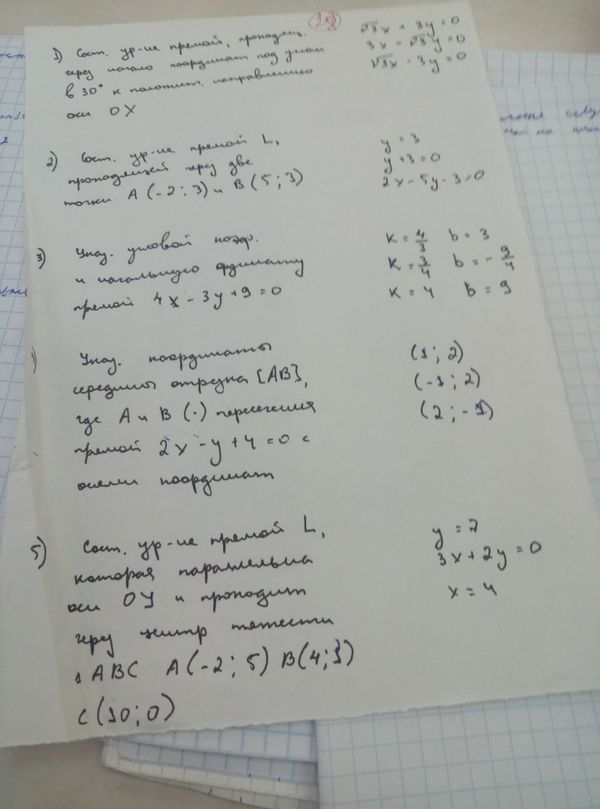 1) Сост. ур-ие прямой, проходящ.
через начало координат под углом
в 30° к положит. направлению
оси OX
√3x + 3y = 0
3x - √3y = 0
√3x - 3y = 0
2) Сост. ур-ие прямой L,
проходящей через две
точки A (-2; 3) и B (5; 3)
y = 3
y + 3 = 0
2x - 5y - 3 = 0
3) Указ. угловой коэф.
и начальную ординату
прямой 4x - 3y + 9 = 0
K = 4/3 b = 3
K = 3/4 b = - 9/4
K = 4 b = 9
Указ. координаты
середины отрезка [AB],
где A и B (·) пересечения
прямой 2x - y + 4 = 0 с
осями координат
(1; 2)
(-1; 2)
(2; -1)
5) Сост. ур-ие прямой L,
которая параллельна
оси OY и проходит
через центр тяжести
ABC A(-2; 5) B(4; )
C(10; 0)
y = 7
3x + 2y = 0
x = 4